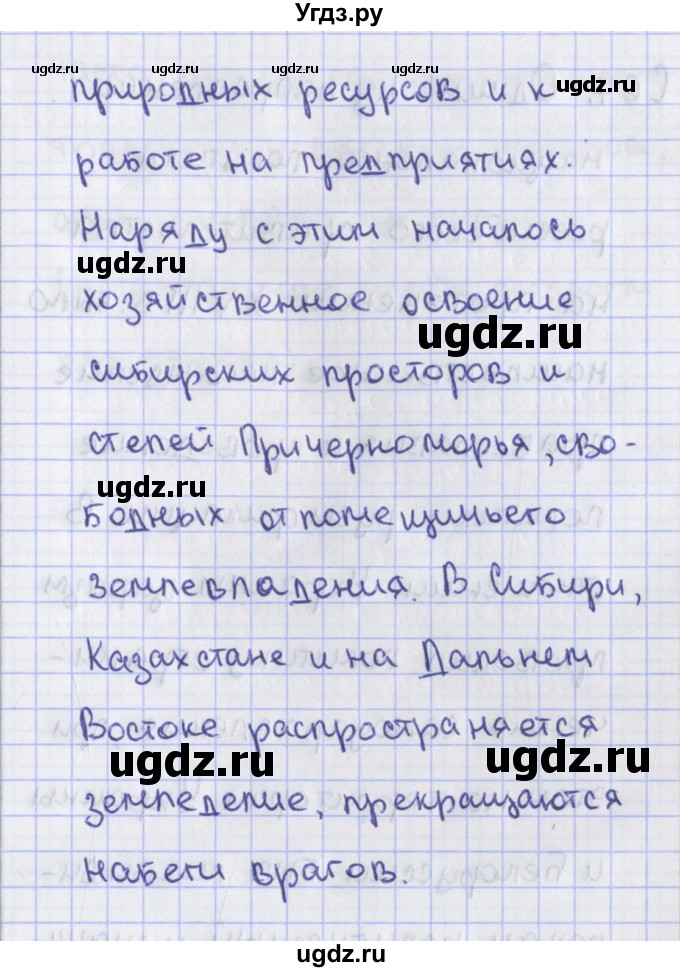 Угдз.ру
ugdz.ru ugdz.ru ugdz.ru ugdz.ru
природных ресурсов и к
ugdz.ru
работе на предприятиях.
Наряду с этим началось
ugdz.ru
хозяйственное освоение
ugdz.ru
сибирских просторов и
степей Причерноморья, сво-
ugdz.ru
бодных от помещичьего
землевладения. В Сибири,
Казахстане и на Дальнем
Востоке распространяется
ugdz.ru ugdz.ru
земледелие, прекращаются
набеги врагов.
ugdz.ru